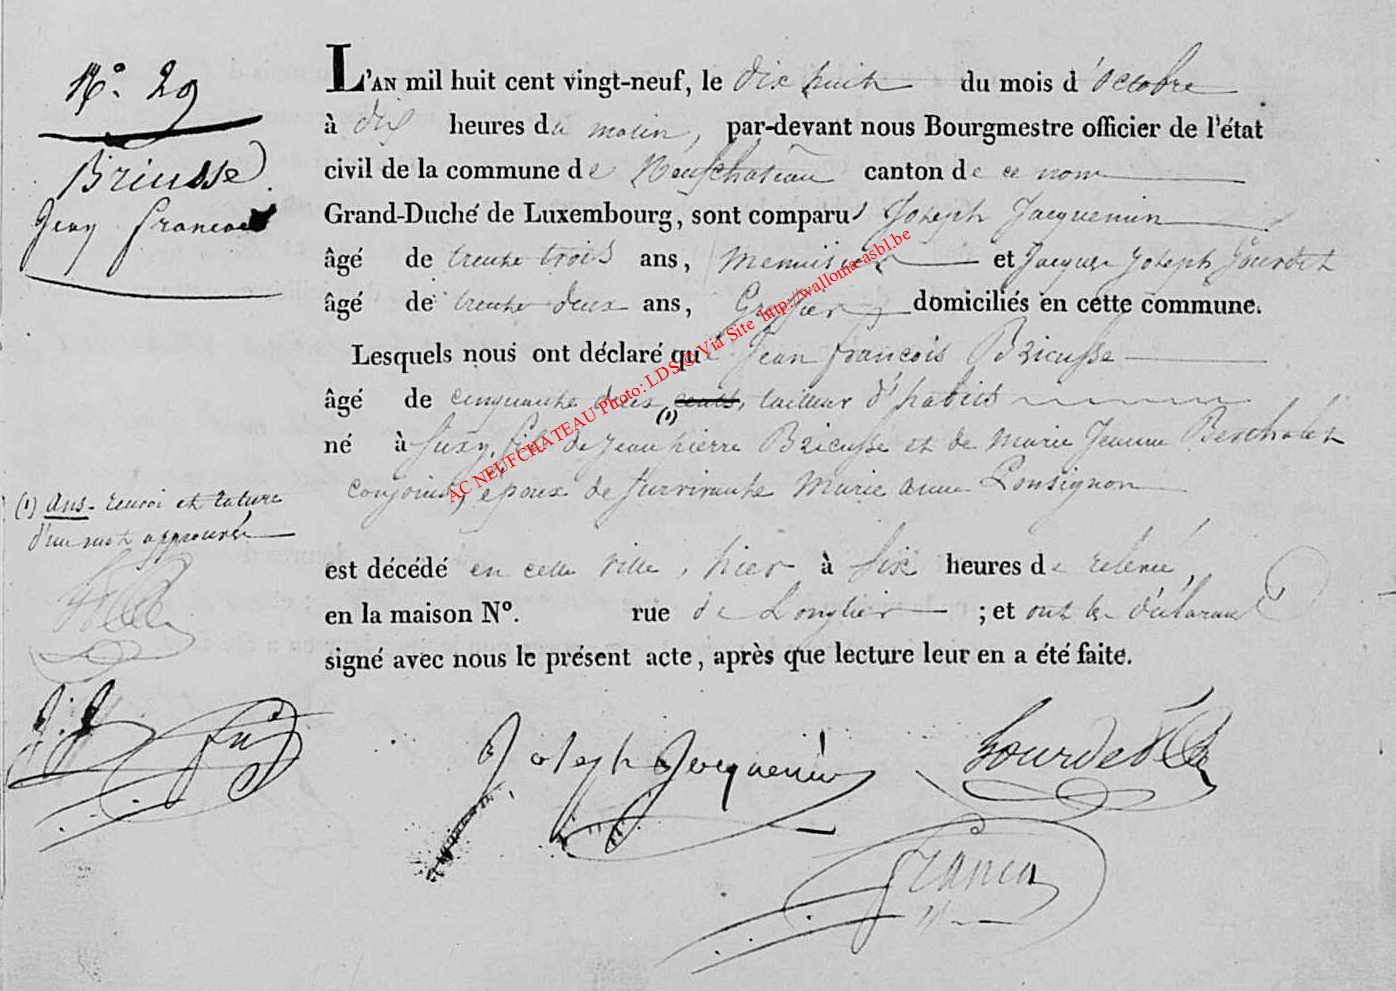 N.° 29
Bricusse
Jean François
L'AN mil huit cent vingt-neuf, le dix huit du mois d'octobre
à dix heures du matin, par-devant nous Bourgmestre officier de l'état
civil de la commune de Neufchateau canton de ce nom
Grand-Duché de Luxembourg, sont comparus Joseph Jacquemin
âgé de trente trois ans, menuisier et Jacques Joseph Gourdet
âgé de trente deux ans, Greffier domiciliés en cette commune.
Lesquels nous ont déclaré que Jean françois Bricusse
âgé de cinquante deux (1), tailleur d'habits
né à Suxy, fils de Jean pierre Bricusse et de Marie Jeanne Bertholet
conjoints, époux de survivante Marie anne Ponsignon
(1) ans. renvoi et rature
d'un mot approuvés
est décédé en cette ville, hier à six heures de relevée,
en la maison N°. rue de Longlier ; et ont les déclarans
signé avec nous le présent acte, après que lecture leur en a été faite.
J. J.
Joseph Jacquemin
AC NEUFCHATEAU Photo: LDS © Via Site http://wallonia-asbl.be